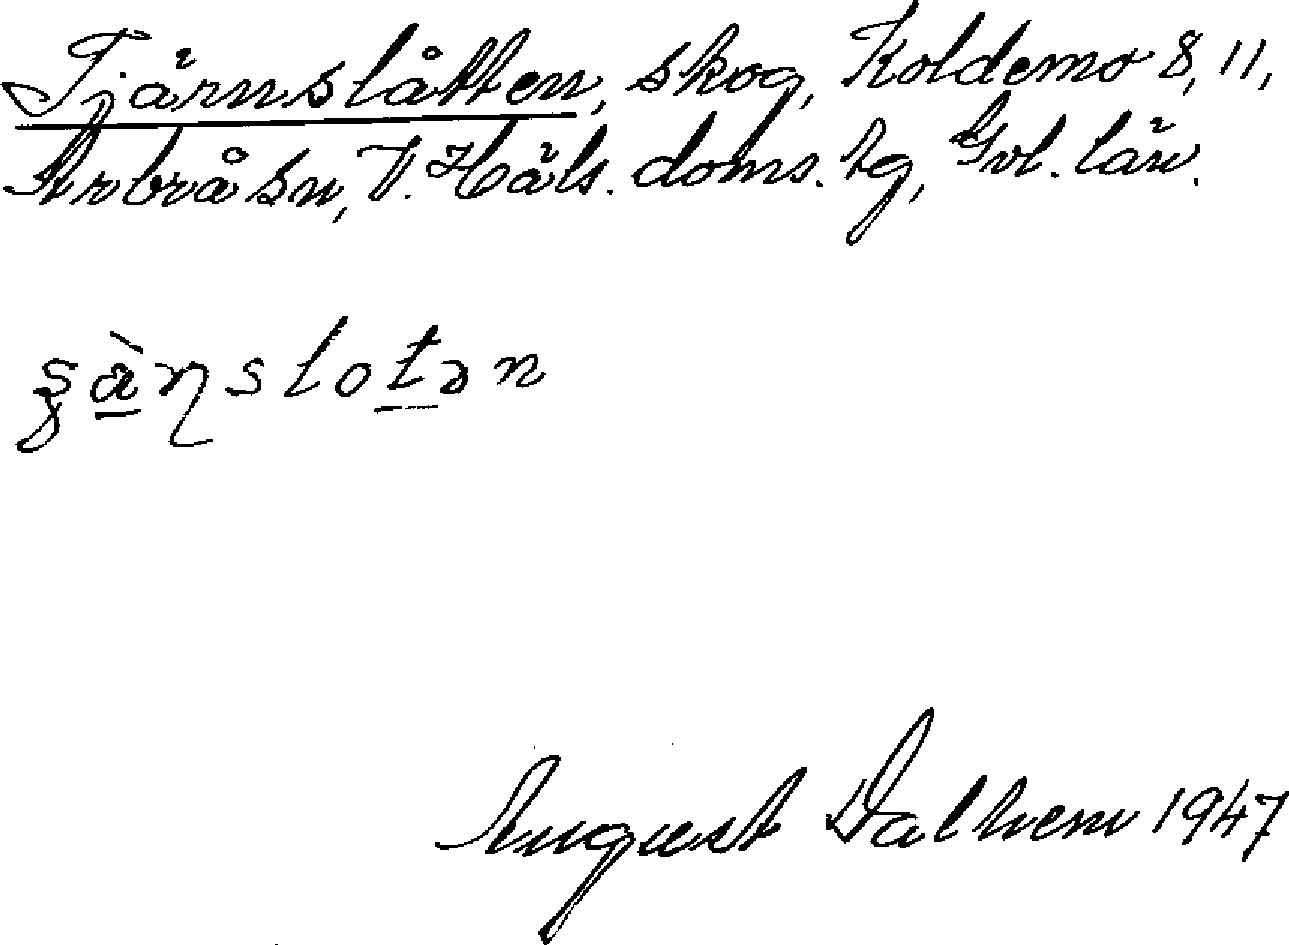 Tjärnslåtten, skog, Koldemo 8, 11,
Arbrå sn, V. Häls. doms. tg, Gvl. län.
August Dalhem 1947